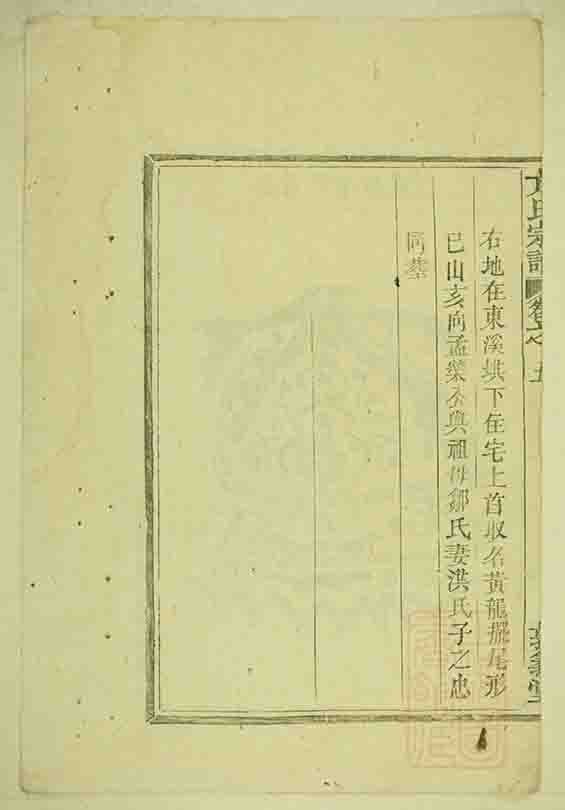 氏宗譜 卷之五
右地在東溪垻下住宅上首取名黃龍擺尾形
巳山亥向孟榮公與祖母鄒氏妻洪氏子之忠
同塋